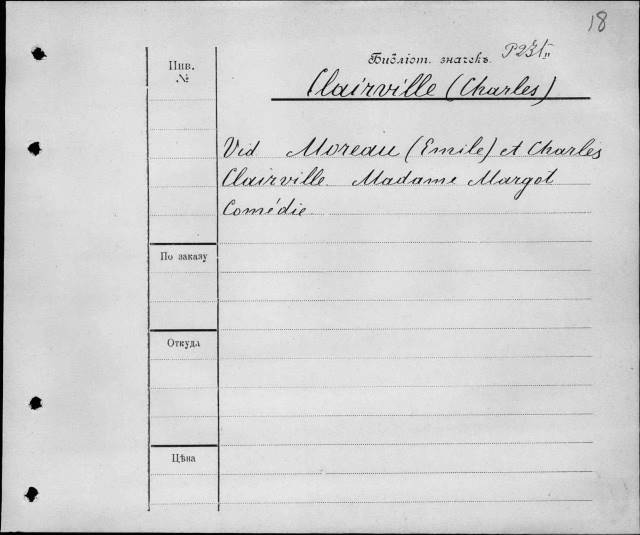 18
Инв.
№
Библіот. значекъ.
Clairville (Charles)
Vid Moreau (Emile) et Charles
Clairville. Madame Margot
Comédie.
По заказу
Откуда
Цѣна